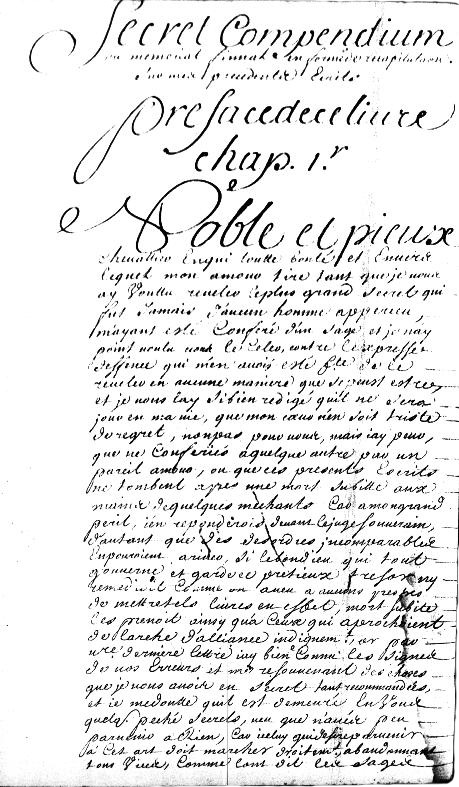 Secret Compendium
ou memorial finnal en forme de recapitulation
Sur mes precedents Ecrits
preface de ce livre
chap. 1.r
Noble et pieux
chevallier En qui toutte bonté et Envers
lequel mon amour tire tant que je vous
ay Voullu reveler le plus grand Secret qui
fut Jamais d'aucun homme apperceu,
m'ayant esté Conferé d'un Sage, et je n'ay
point voulu vous le Celer, contre l'expresse
deffence qui m'en avoit esté fte de le
reveler en aucune maniere que se peust estre,
et je vous l'ay Si bien redigé qu'il ne Sera
jour en ma vie, que mon cœur n'en soit triste
de regret, non pas pour vous, mais j'ay peur,
que ne Conferiés a quelque autre par un
pareil amour, ou que ces presents Escrits
ne tombent apres une mort Subitte aux
mains de quelques méchants Car a mon grand
peril, j'en reponderois devant le juge Souverain,
d'autant que des desordres incomparables
En pouroient ariver, Si le bon dieu qui tout
gouverne et garde ce pretieux tresor n'y
remedioit Comme on a veu a aucuns presque
de mettre tels livres en effet, mort subite
les prenoit ainsy qu'a Ceux qui aprochoient
de l'arche d'alliance indignemt, or par
vre derniere lettre j'ay bien Connu Les Signes
de vos Erreurs et me resouvenant des choses
que je vous avois en Secret tant recommandées,
et je me doutte qu'il est demeuré En Vous
quelq peché Secrets, veu que n'aviés peu
parvenir a Rien, Car iceluy qui desire parvenir
a Cet art doit marcher droitemt, abandonnant
tous Vices, Comme l'ont dit les Sages